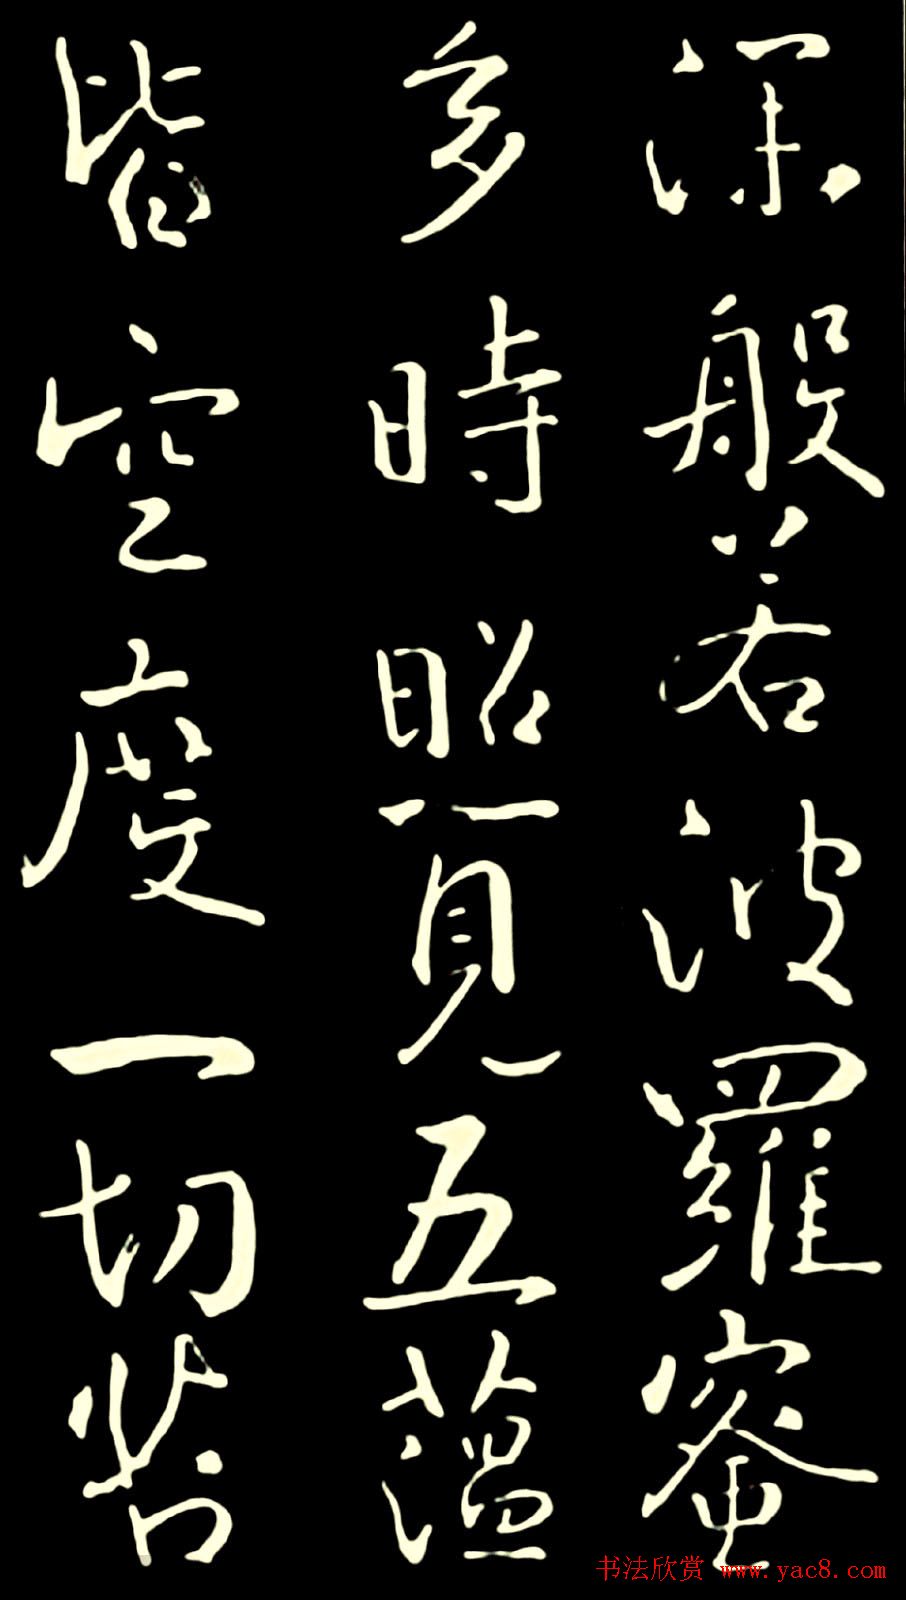 深般若波羅蜜
多時照見五蘊
皆空度一切苦
书法欣赏 www.yac8.com